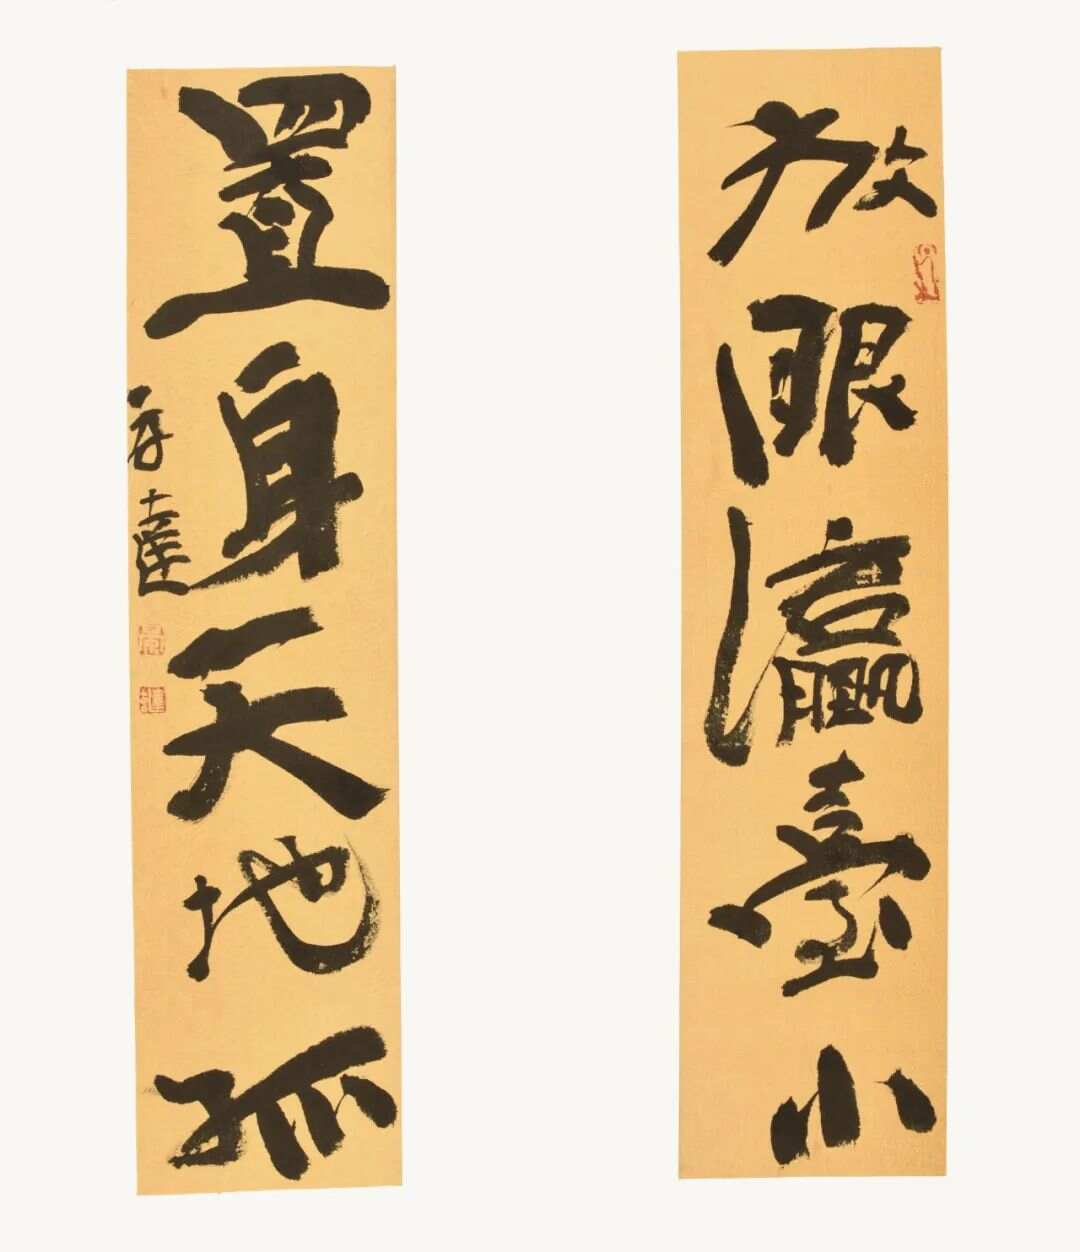 放眼瀛臺小
置身天地孤